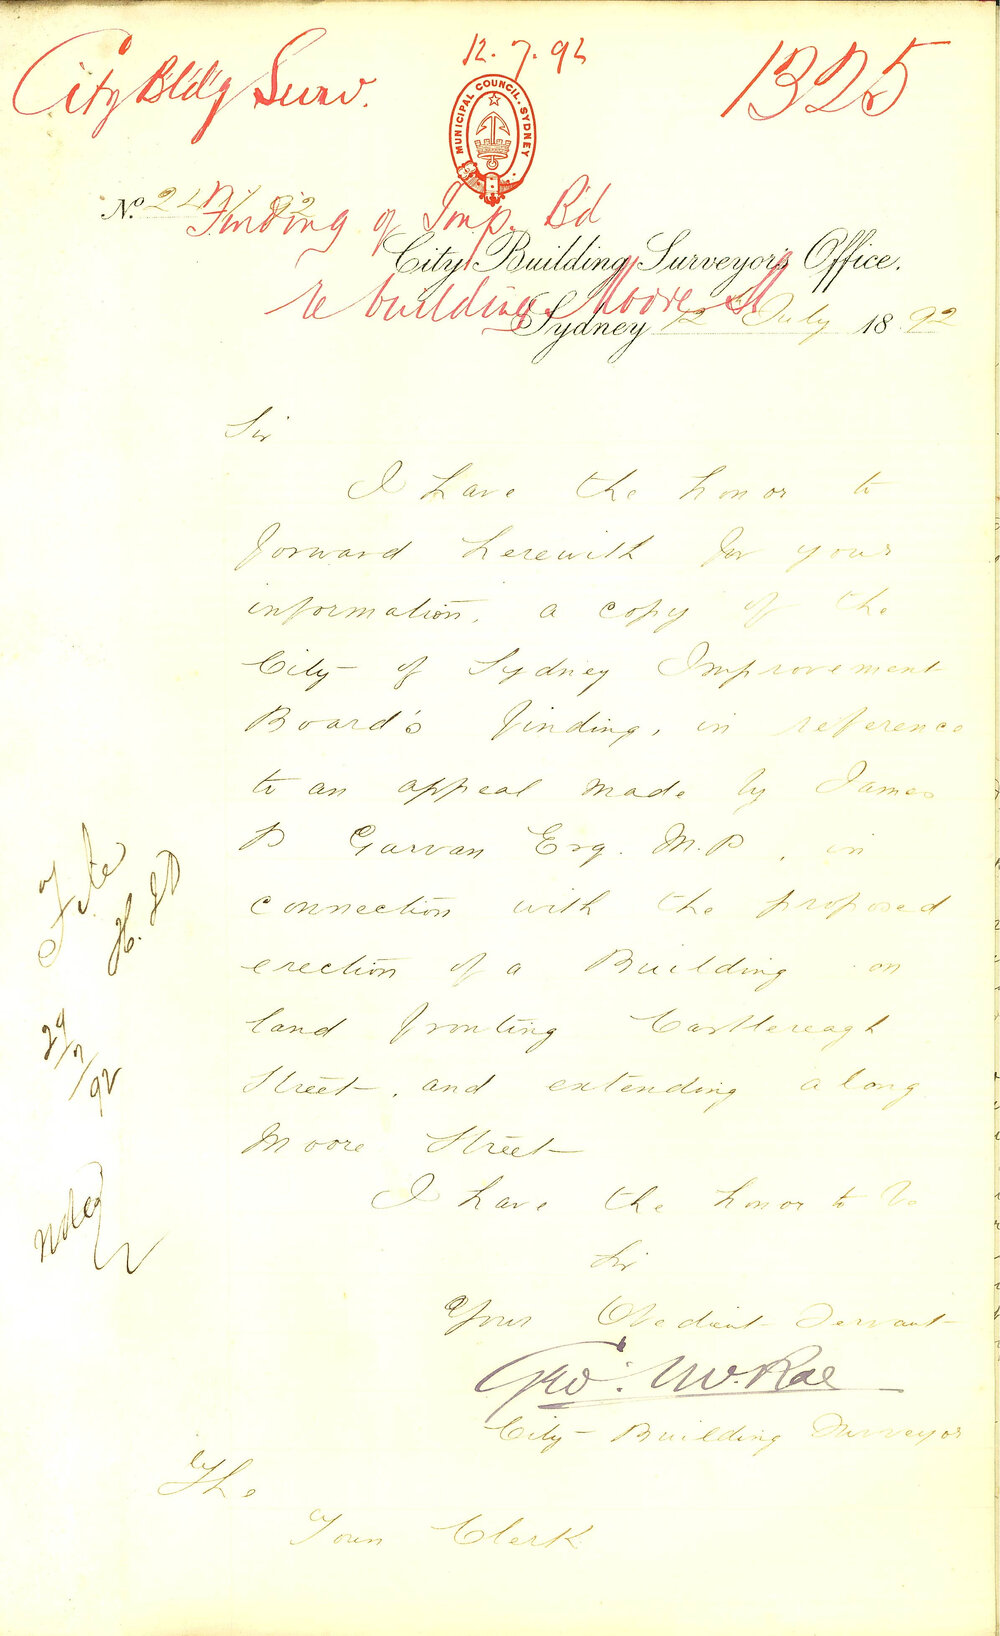 City Bldg Surv.
12.7.92
1325
MUNICIPAL COUNCIL. SYDNEY
No. 92
Finding of Imp. Bd
City Building Surveyor's Office.
re building Moore St
Sydney 12 July 1892
Sir
I have the honor to
forward herewith for your
information, a copy of the
City of Sydney Improvement
Board's finding, in reference
to an appeal made by James
P Garvan Esq. M.P, in
connection with the proposed
erection of a Building on
land fronting Castlereagh
Street, and extending along
Moore Street
I have the honor to be
Sir
Your Obedient Servant
Geo. McRae
City Building Surveyor
The
Town Clerk
File
29/7/92